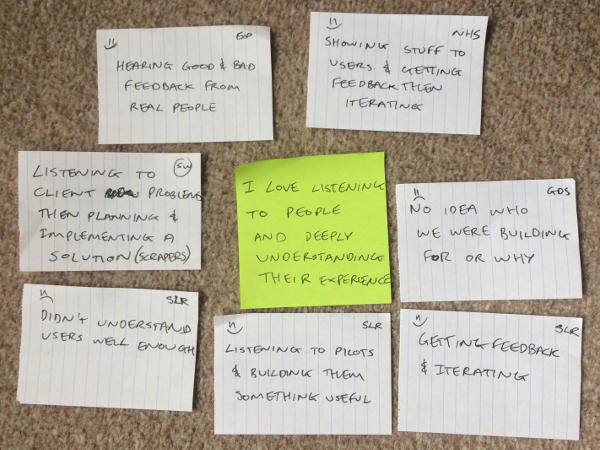 GP
HEARING GOOD & BAD
FEEDBACK FROM
REAL PEOPLE
NHS
SHOWING STUFF TO
USERS & GETTING
FEEDBACK THEN
ITERATING
SW
LISTENING TO
CLIENT PROBLEMS
THEN PLANNING &
IMPLEMENTING A
SOLUTION (SCRAPERS)
I LOVE LISTENING
TO PEOPLE
AND DEEPLY
UNDERSTANDING
THEIR EXPERIENCE
GDS
NO IDEA WHO
WE WERE BUILDING
FOR OR WHY
SLR
DIDN'T UNDERSTAND
USERS WELL ENOUGH
SLR
LISTENING TO PILOTS
& BUILDING THEM
SOMETHING USEFUL
SLR
GETTING FEEDBACK
& ITERATING